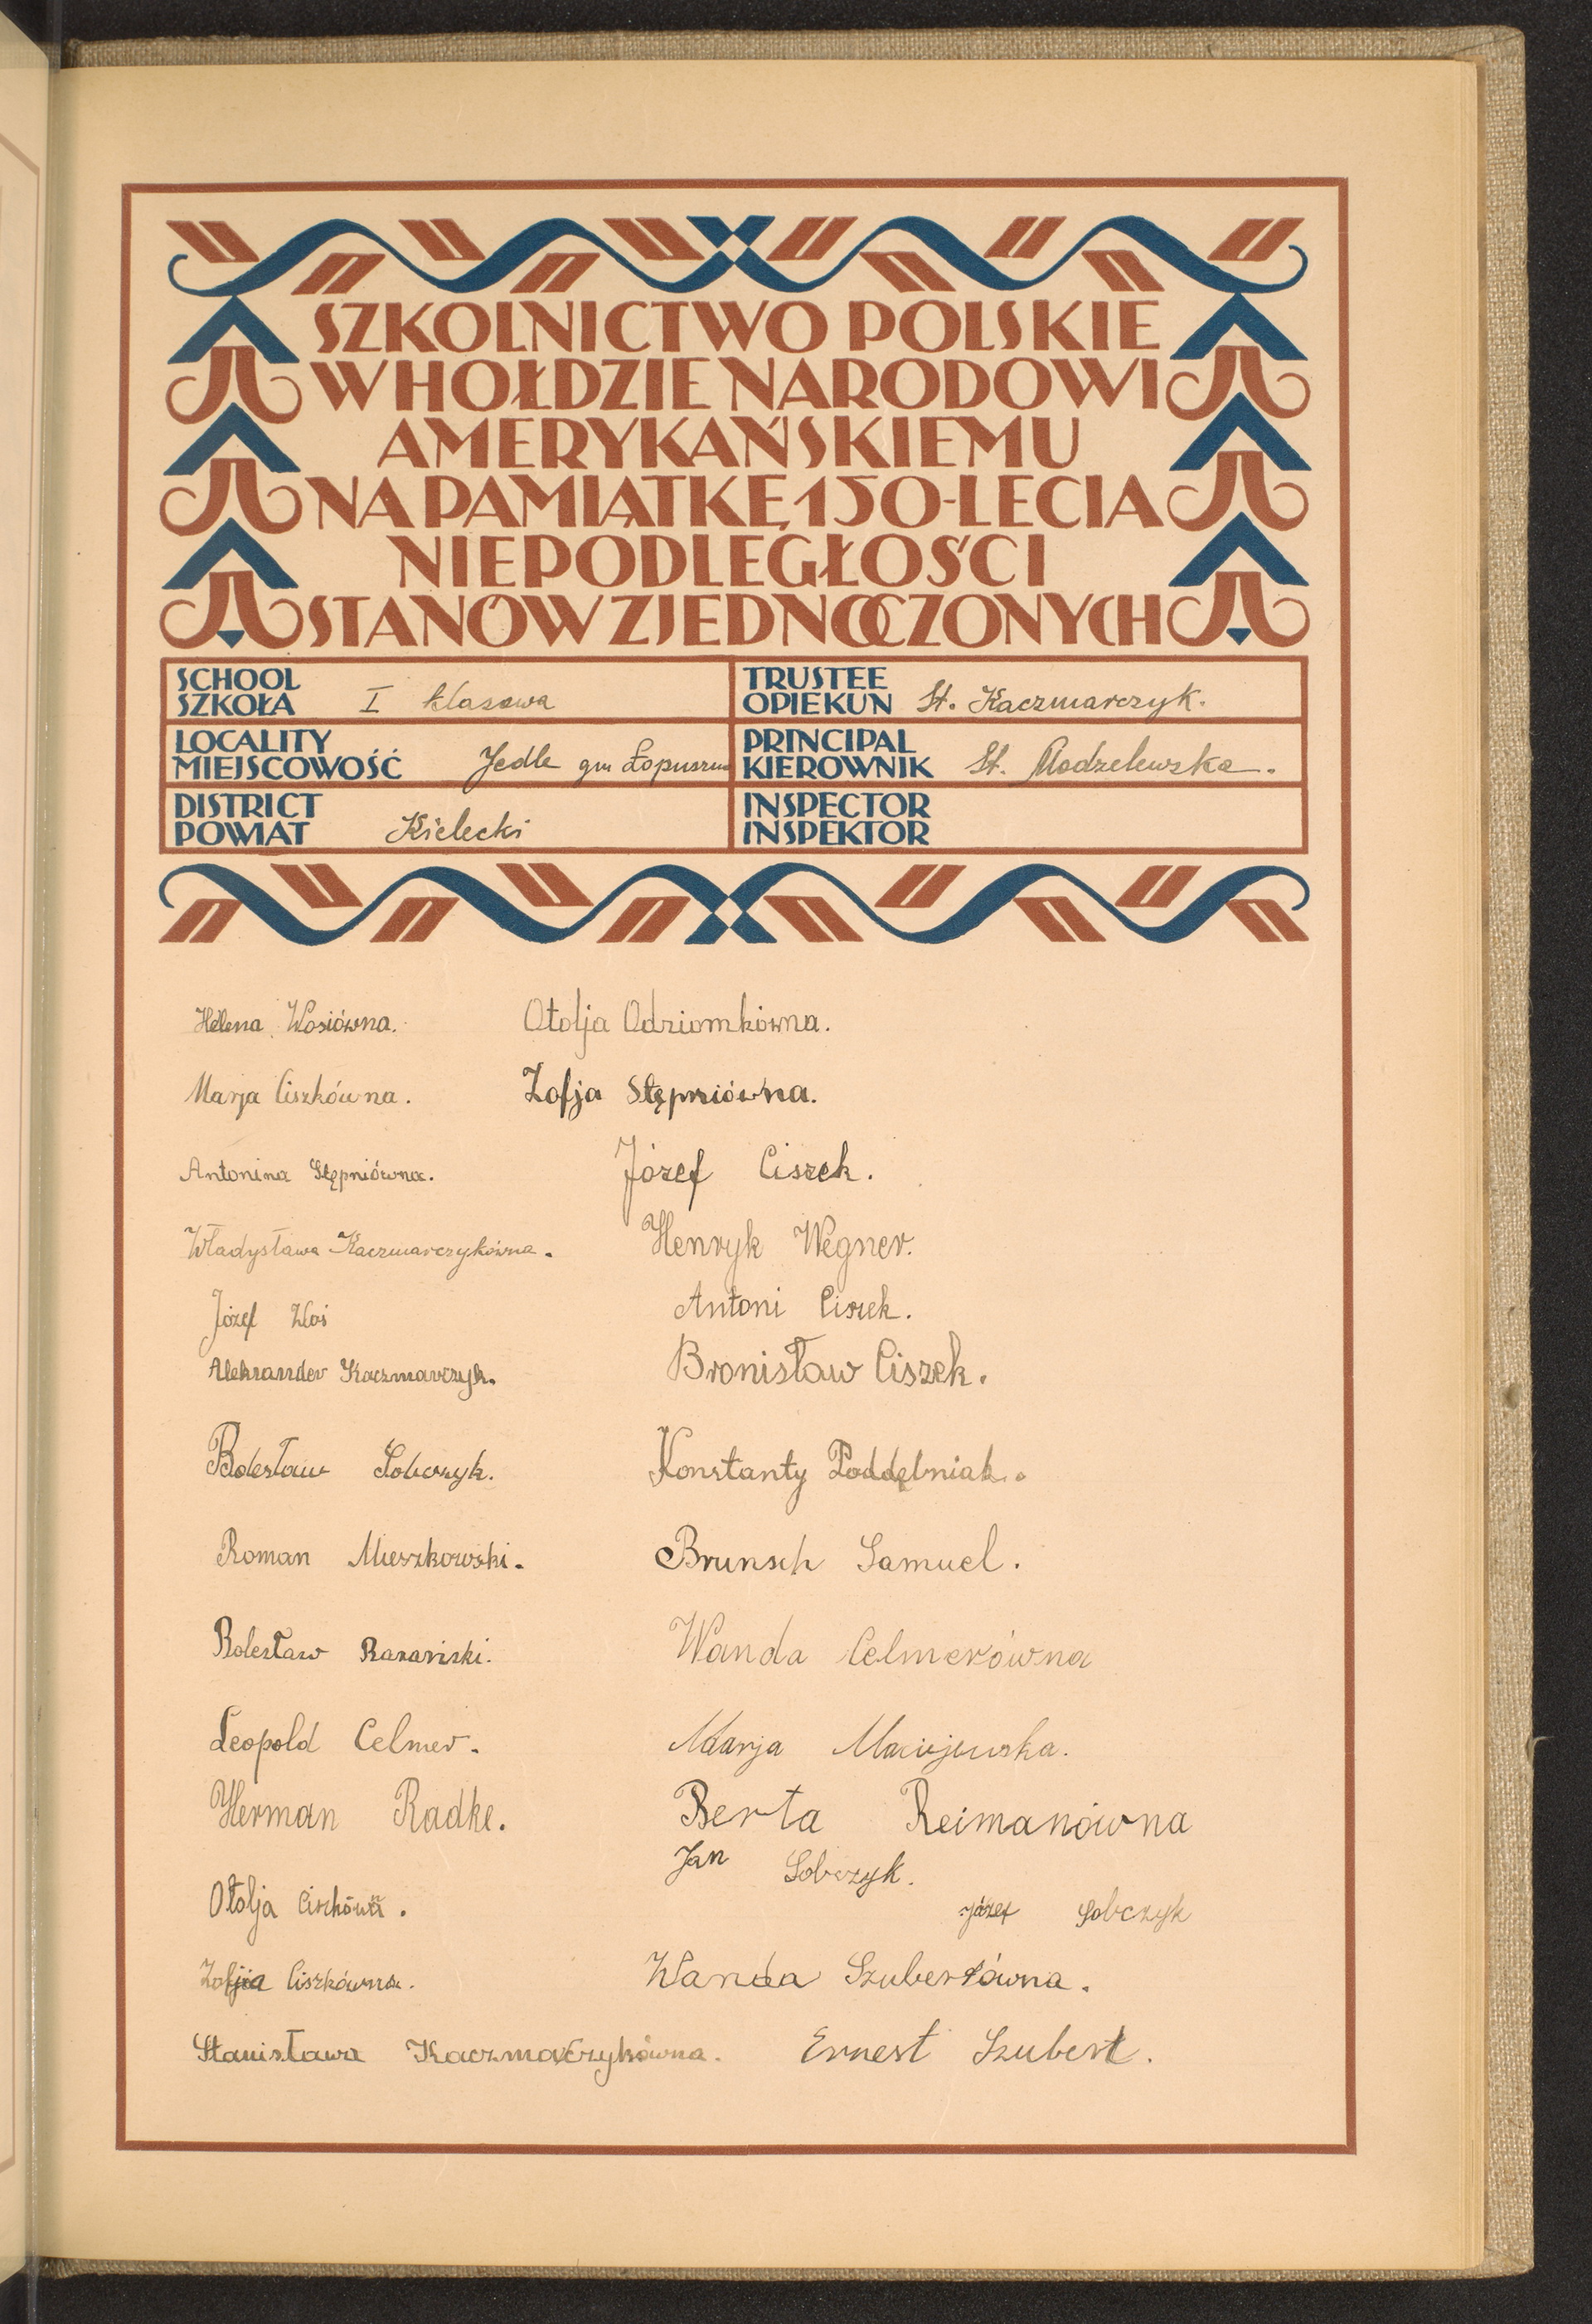 SZKOLNICTWO POLSKIE
W HOŁDZIE NARODOWI
AMERYKAŃSKIEMU
NA PAMIĄTKĘ 150-LECIA
NIEPODLEGŁOŚCI
STANÓW ZJEDNOCZONYCH
SCHOOL
SZKOŁA I klasowa
TRUSTEE
OPIEKUN St. Kaczmarczyk.
LOCALITY
MIEJSCOWOŚĆ Jedle gm Łopuszno
PRINCIPAL
KIEROWNIK St. Modzelewska.
DISTRICT
POWIAT Kielecki
INSPECTOR
INSPEKTOR
Helena Wosiówna.
Marja Ciszkówna.
Antonina Stępniówna.
Władysława Kaczmarczykówna.
Józef Woś
Aleksander Kaczmarczyk.
Bolesław Sobczyk.
Roman Mieszkowski.
Bolesław Barański.
Leopold Celmer.
Herman Radke.
Otolja
Zofja Ciszkówna.
Stanisława Kaczmarczykówna.
Otolja Odziomkówna.
Zofja Stępniówna.
Józef Ciszek.
Henryk Wegner.
Antoni Ciszek.
Bronisław Ciszek.
Konstanty Poddębniak.
Brunsch Samuel.
Wanda Celmerówna
Marja Maciejewska.
Berta Reimanówna
Jan Sobczyk.
Józef Sobczyk
Wanda Szubertówna.
Ernest Szubert.